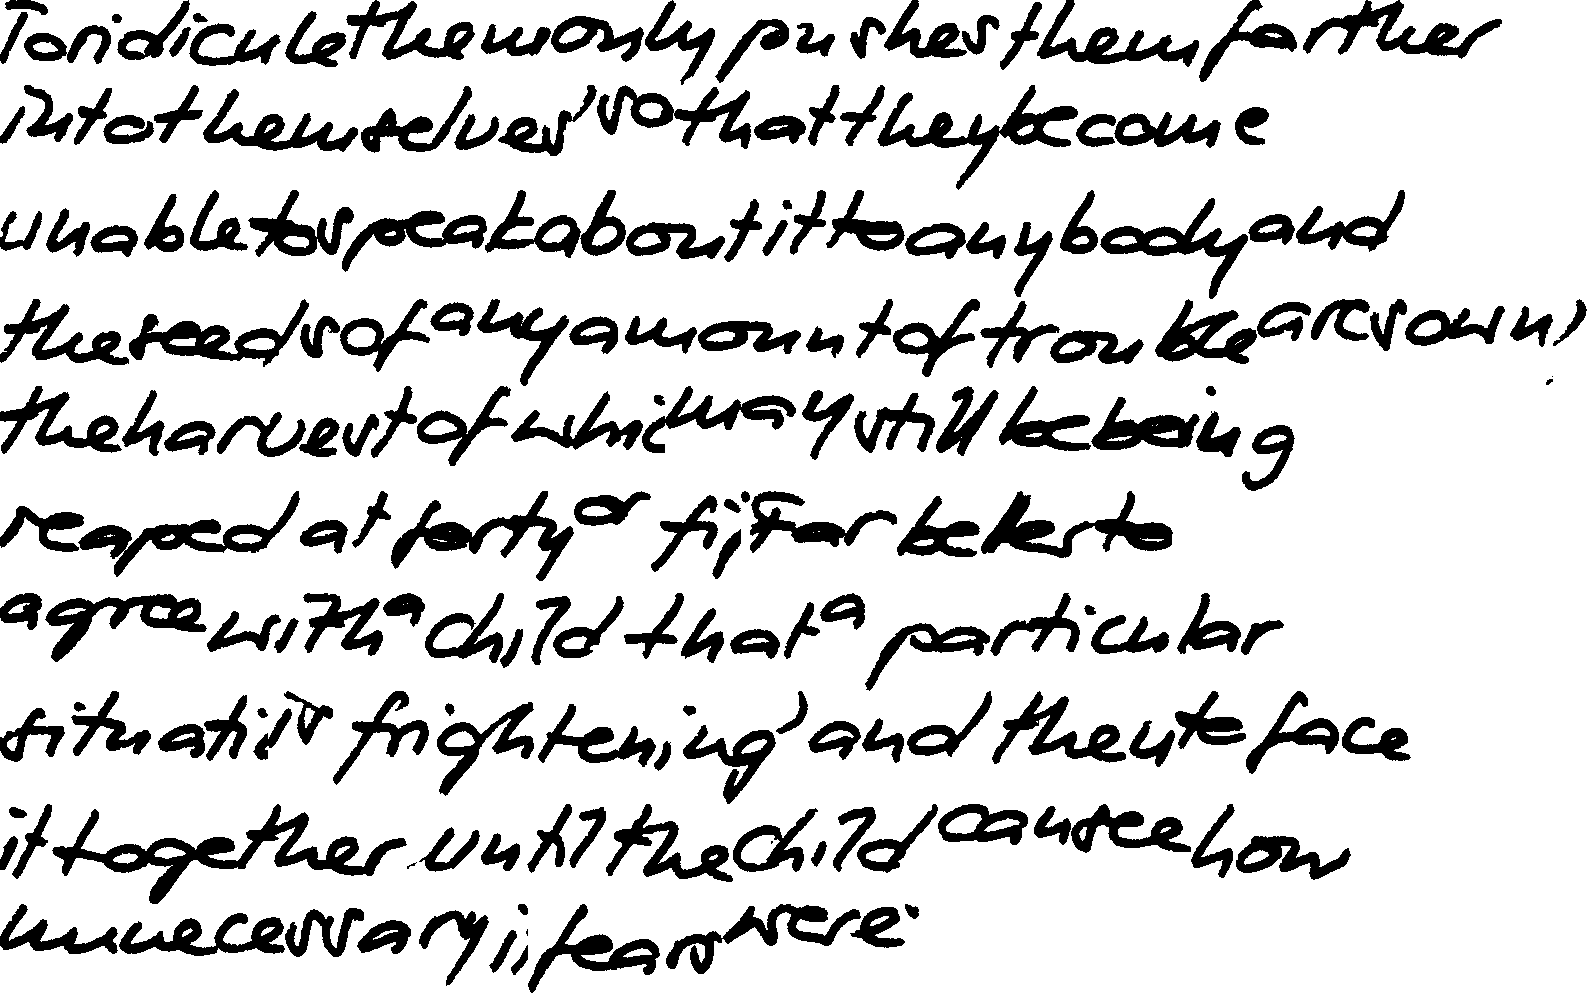 To ridicule them only pushes them farther
into themselves, so that they become
unable to speak about it to anybody and
the seeds of any amount of trouble are sown,
the harvest of which may still be being
reaped at forty or Far better to
agree with a child that a particular
is frightening, and then to face
it together until the child can see how
unnecessary fears were.